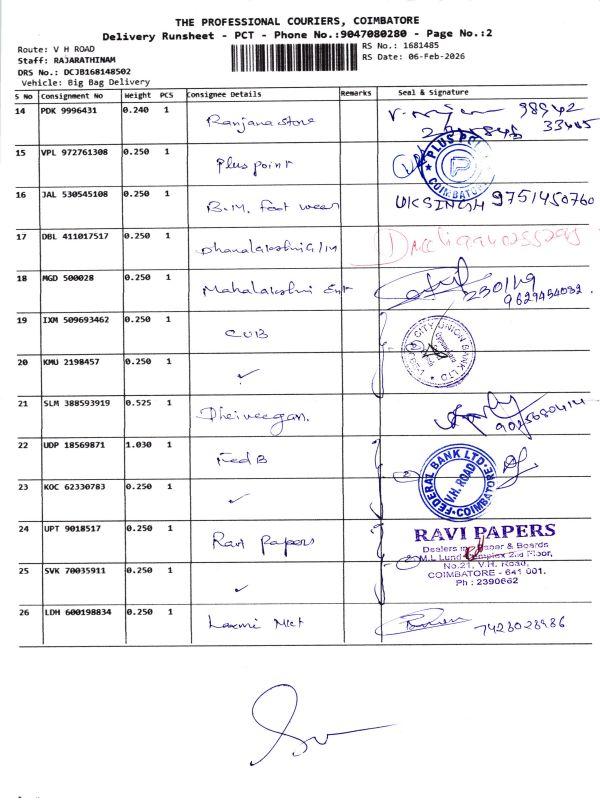 THE PROFESSIONAL COURIERS, COIMBATORE
Delivery Runsheet - PCT - Phone No.:9047080280 - Page No.:2
Route: V H ROAD
RS No.: 1681485
Staff: RAJARATHINAM
RS Date: 06-Feb-2026
DRS No.: DCJB168148502
Vehicle: Big Bag Delivery
S No Consignment No Weight PCS Consignee Details Remarks Seal & Signature
14 PDK 9996431 0.240 1 Ranjana store 98942
33445
15 VPL 972761308 0.250 1 Plus point PLUS POINT COIMBATORE
16 JAL 530545108 0.250 1 B.M. foot wear UKSINGH 9751450760
17 DBL 411017517 0.250 1
18 MGD 500028 0.250 1 Mahalakshmi Ent 230/49
9629454032.
19 IXM 509693462 0.250 1 CUB CITY UNION BANK LTD
20 KMU 2198457 0.250 1 ✓
21 SLM 388593919 0.525 1 Dheiveegan. 9025680414
22 UDP 18569871 1.030 1 Fed B FEDERAL BANK LTD. V.H. ROAD COIMBATORE
23 KOC 62330783 0.250 1 ✓
24 UPT 9018517 0.250 1 Ravi Papers RAVI PAPERS
Dealers in Paper & Boards
M.L Lund Complex 2nd Floor,
No.21, V.H. Road,
COIMBATORE - 641 001.
Ph : 2390662
25 SVK 70035911 0.250 1 ✓
26 LDH 600198834 0.250 1 Laxmi Mkt 7428028986